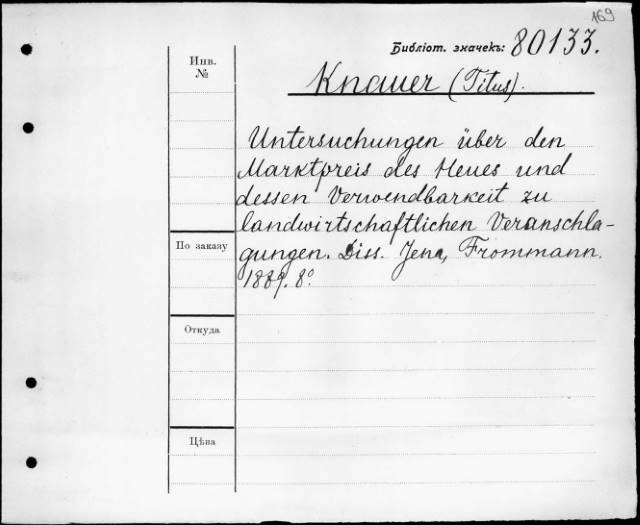 169
Библіот. значекъ: 80133.
Инв.
№
Knauer (Titus).
Untersuchungen über den
Marktpreis des Heues und
dessen Verwendbarkeit zu
landwirtschaftlichen Veranschla-
gungen. Diss. Jena, Frommann.
1889. 8°.
По заказу
Откуда
Цѣна